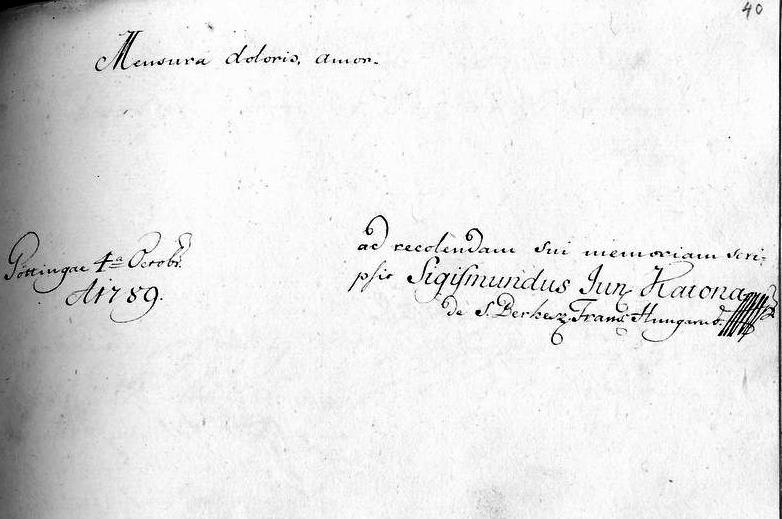 40
Mensura doloris, amor.
ad recolendam sui memoriam scri-
psit Sigismundus Jun Katona
de S. Berkesz Trans Hungarus.
Göttingae 4ª Octobr.
A 1789.